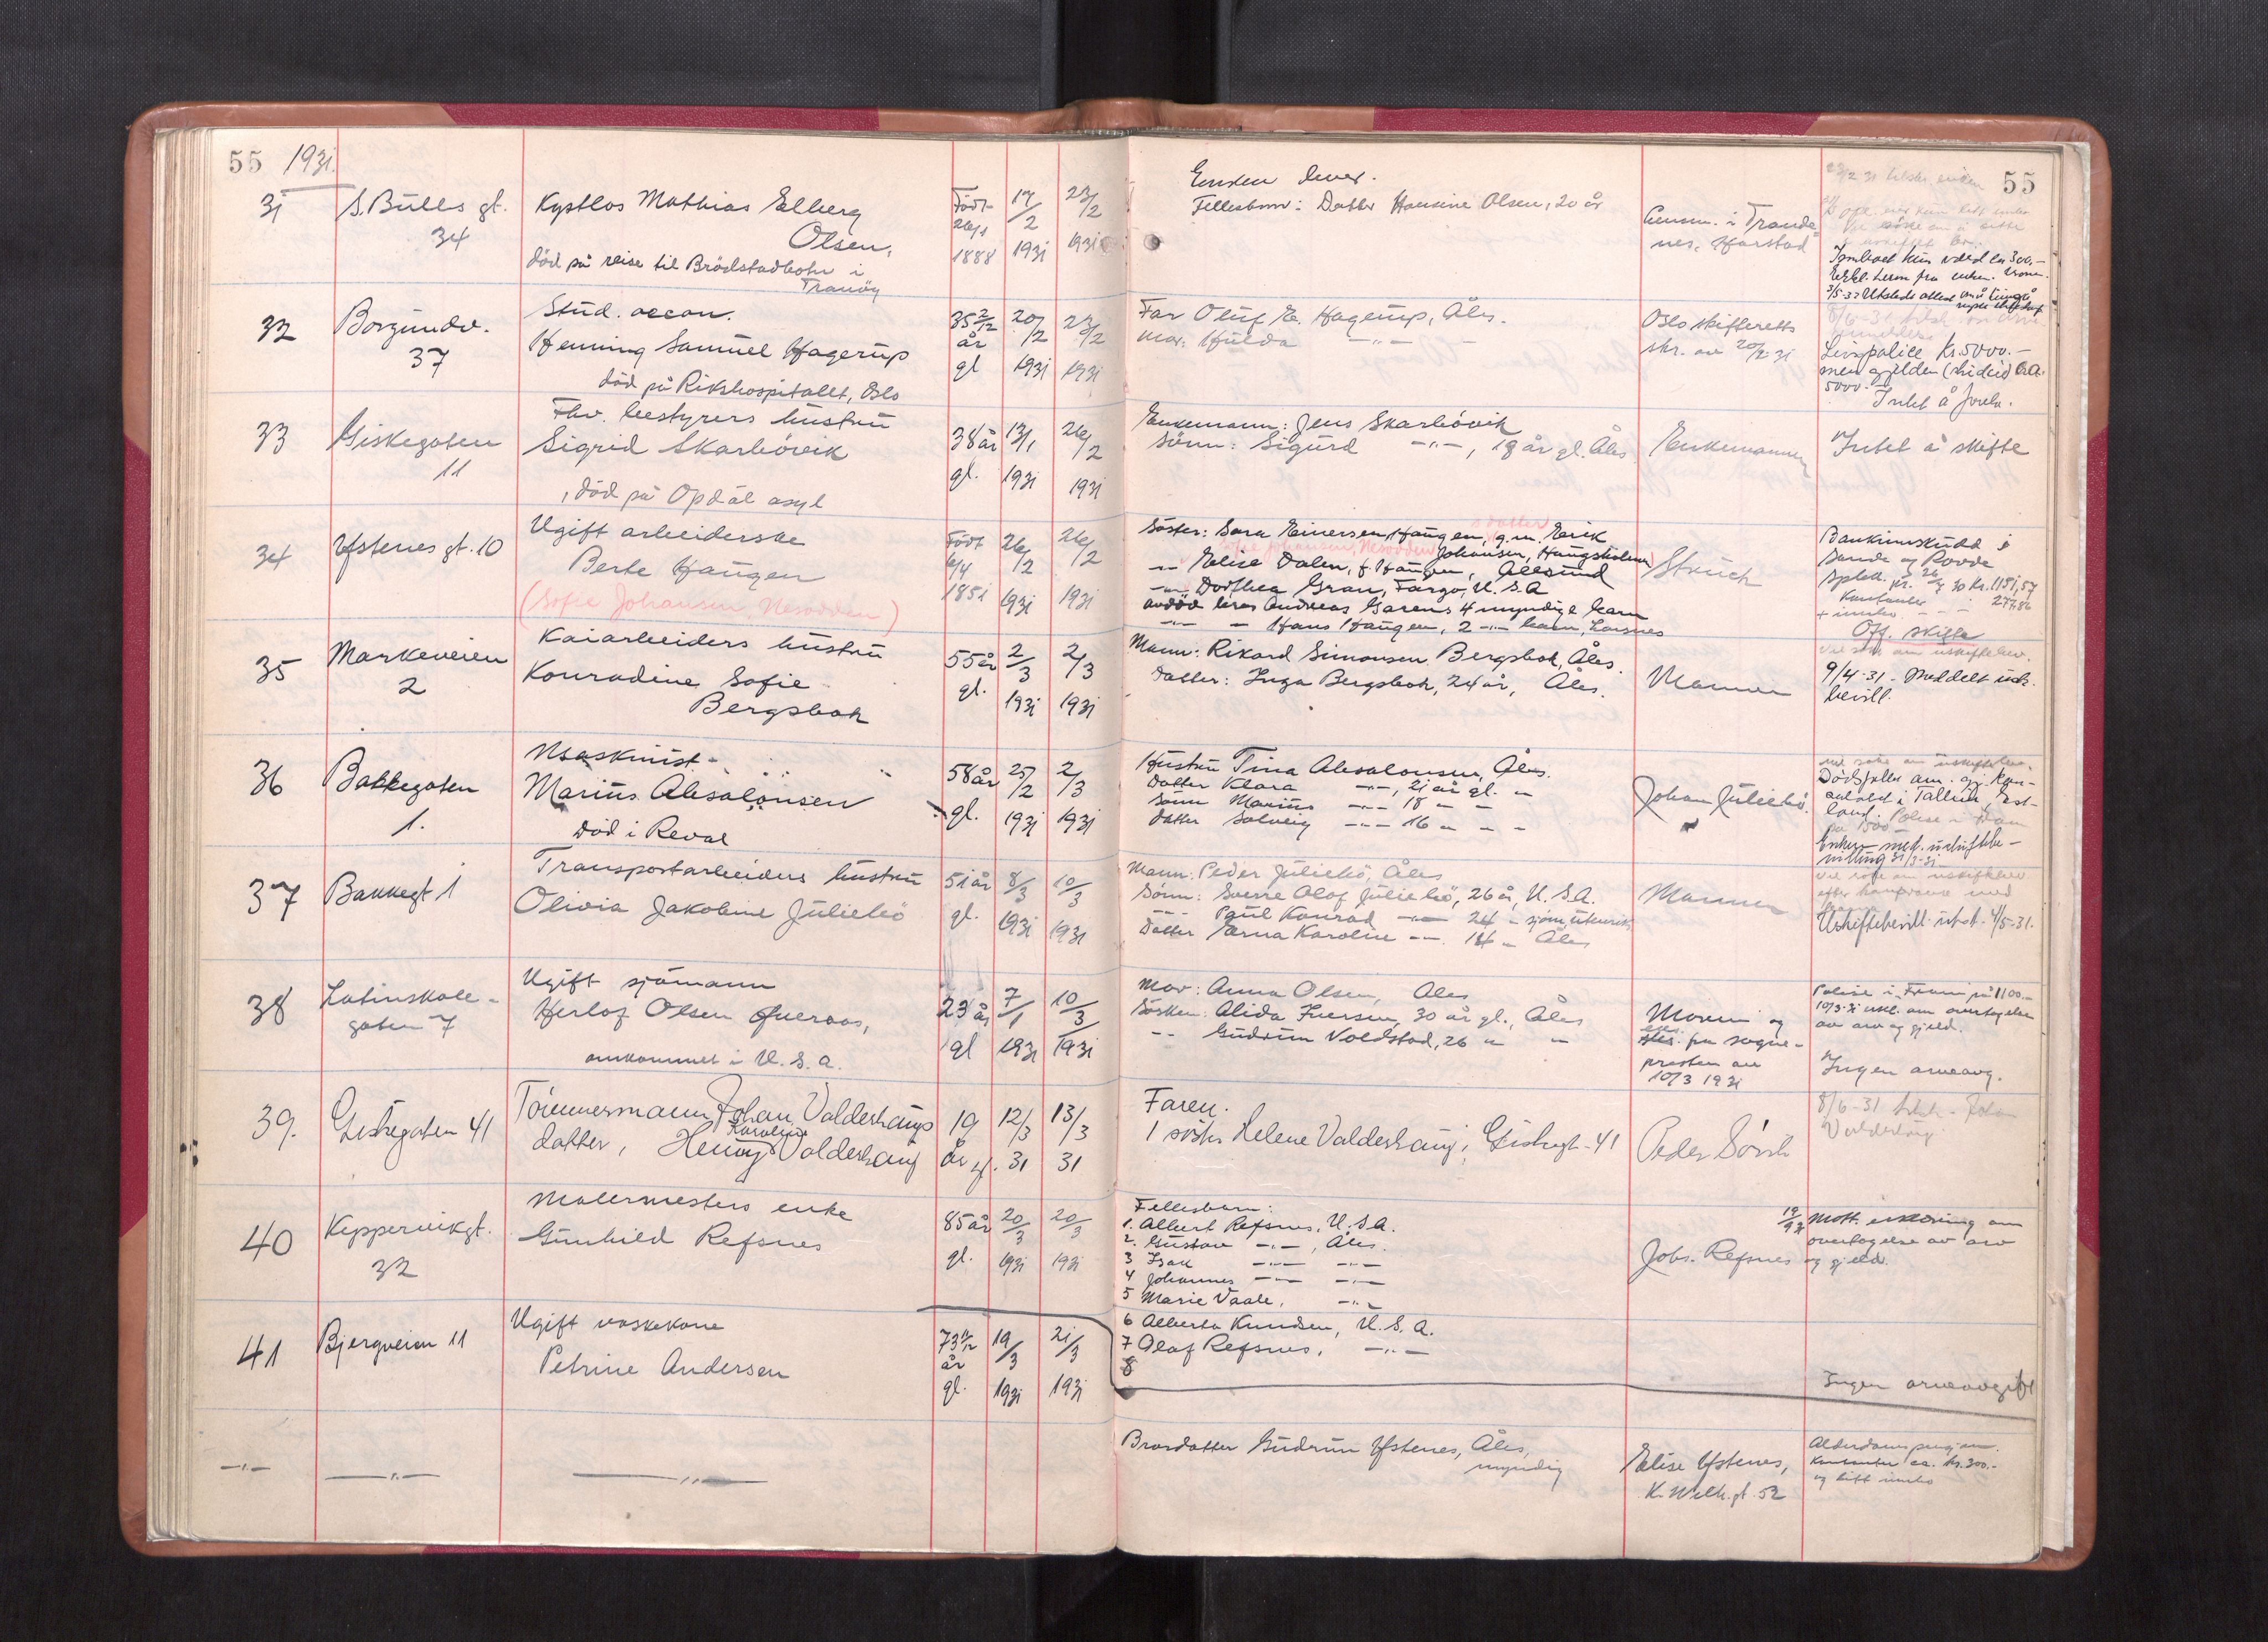 55 1931.
31 S. Bulls gt. 34
Kystlos Mathias Elberg
Olsen,
död på reise til Brödstadbotn i
Tranöy
Født 26/1 1888
17/2 1931
23/2 1931
Enken lever.
Fellesbarn: Datter Hansine Olsen, 20 år
Lensm. i Trande-
nes, Harstad
55
Innboet kun verd ca 300.-
32 Borgundv. 37
Stud. oecon.
Henning Samuel Hagerup
död på Rikshospitalet, Oslo
35 2/12 år gl
20/2 1931
23/2 1931
Far Oluf E. Hagerup, Åles.
Mor: Hulda -"- -
Oslo skifteretts
skr. av 20/2-31
Livspolice kr. 5000.-
men gjelden (studie) ca.
5000.-
Intet å forela.
33 Giskegaten 11
Fhv. bestyrers hustru
Sigrid Skarbövik
, död på Opdal asyl
38 år gl.
13/1 1931
26/2 1931
Enkemann: Jens Skarbövik
Sönn: Sigurd -"-, 18 år gl. Åles
Enkemannen
Intet å skifte
34 Ystenes gt. 10
Ugift arbeiderske
Berte Haugen
(Sofie Johansen Nesodden)
Født 6/4 1851
26/2 1931
26/2 1931
Söster: Sara Einersen, Haugen, g.m. Erik
Johansen, Haugsholmen
-"- Elise Dalen, f. Haugen, Ålesund
-"- Dorthea Gran, Fargo, U.S.A
avdöd bros Andreas Garens 4 myndige barn
-"- - Hans Haugen, 2 -"- barn, Larsnes
Struch
Bankinnskudd i
Sande og Rovde
Spbk. pr. 26/7 30 kr. 1151,57
Kontanter - - 277,86
+ innbo - -
Off. skifte
35 Markeveien 2
Kaiarbeiders hustru
Konradine Sofie
Bergsbok
55 år gl.
2/3 1931
2/3 1931
Mann: Rikard Simonsen Bergsbok, Åles.
Datter: Inga Bergsbok, 24 år, Åles.
Mannen
9/4-31. Meddelt usk.
bevill.
36 Bakkegaten 1.
Maskinist
Marius Absalonsen
Död i Reval
58 år gl.
25/2 1931
2/3 1931
Hustru Tina Absalonsen, Åles.
Datter Klara -"-, 21 år gl. "
Sönn Marius -"- 18 " "
Datter Solveig -"- 16 " " -
Johan Juliebö.
Dödsfallet anm. gj. Kon-
sulatet i Tallin, Est-
land.
Enken medd. uskiftebe-
villing 31/3-31
37 Bakkegt 1
Transportarbeiders hustru
Olivia Jakobine Juliebö
51 år gl.
8/3 1931
10/3 1931
Mann: Peder Juliebö, Åles
Sönn: Sverre Olaf Juliebö, 26 år, U.S.A.
-"- Paul Konrad -"- 24 - sjöm, utenriks
Datter Erna Karoline -"- 14 " Åles
Mannen
Uskiftebevill. utst. 4/5-31.
38 Latinskole-
gaten 7
Ugift sjömann
Herlof Olsen Queraas,
omkommet i U.S.A.
23 år gl
7/1 1931
10/3 1931
Mor: Anna Olsen, Åles
Söskn: Alida Iversen, 30 år gl., Åles
-"- Gudrun Voldstad, 26 " "
Moren og
fra sogne-
presten av
10/3 1931
Polise i "Fram" på 1100.-
10/3-31 erkl. om overtagelse
av arv og gjeld.
Ingen arveavg.
39. Giskegaten 41
Tömmermann Johan Valderhaugs
datter, Henny Karoline Valderhaug
19 år gl.
12/3 31
13/3 31
Faren.
1 söster Helene Valderhaug, Giskegt. 41
Peder Sörvik
8/6-31 tilsk. Johan
Valderhaug.
40 Kippervikgt. 32
Malermesters enke
Gunhild Refsnes
85 år gl.
20/3 1931
20/3 1931
Fellesbarn:
1. Albert Refsnes, U.S.A.
2. Gustav -"-, Åles.
3 Isak -"- -"-
4 Johannes -"- -"-
5 Marie Vaale, -"-
6 Alberta Knudsen, U.S.A.
7 Olaf Refsnes, -"-
8
Johs. Refsnes
Mott. erklæring om
overtagelse av arv
og gjeld.
Ingen arveavgift
41 Bjergveien 11
Ugift vaskekone
Petrine Andersen
år gl.
19/3 1931
21/3 1931
-"- -"- -"-
Brordatter Gudrun Ystenes, Åles,
myndig
Elise Ystenes,
K. Wilh. gt. 52
Kontanter ca. kr. 300.-
og litt innbo